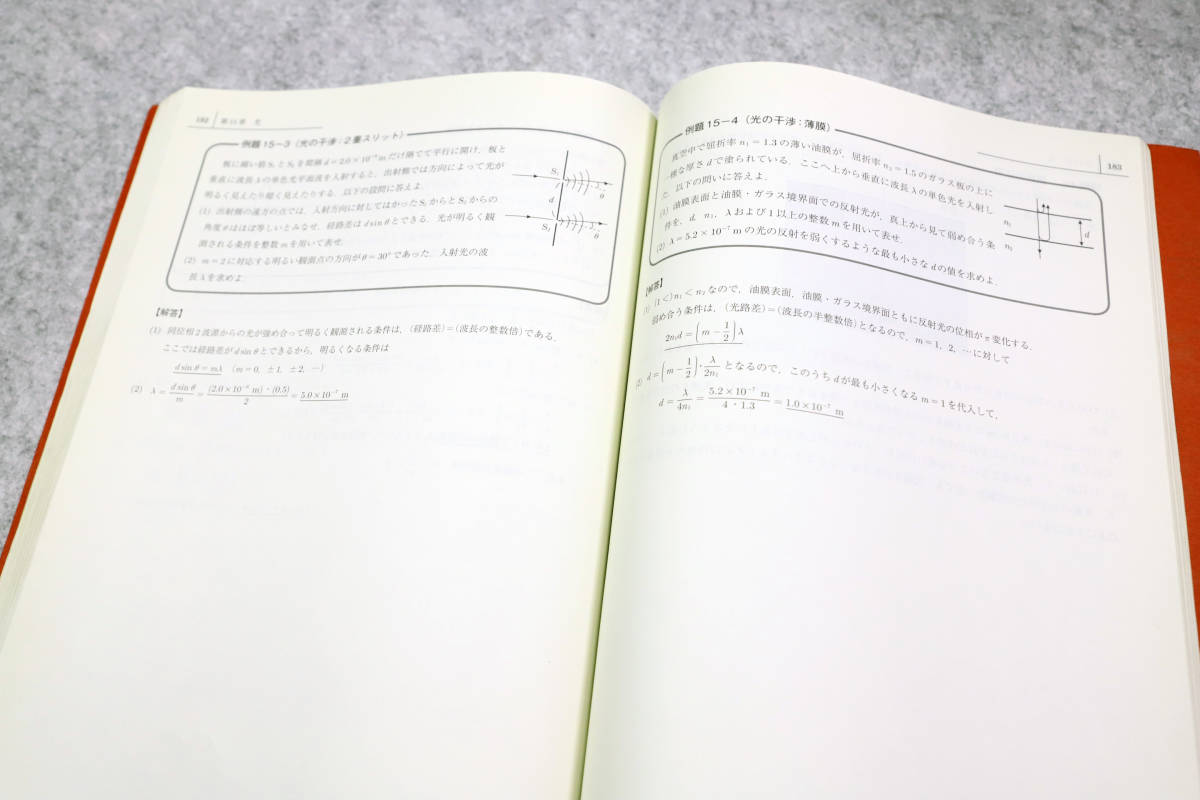 182 第15章 光
例題15−3（光の干渉：2重スリット）
板に細い筋S₁とS₂を間隔d＝2.0×10⁻⁶mだけ隔てて平行に開け，板と
垂直に波長λの単色光平面波を入射すると，出射側では方向によって光が
明るく見えたり暗く見えたりする．以下の設問に答えよ．
(1) 出射側の遠方の点では，入射方向に対してはかったS₁からとS₂からの
角度θはほぼ等しいとみなせ，経路差はd sinθとできる．光が明るく観
測される条件を整数mを用いて表せ．
(2) m＝2に対応する明るい観測点の方向がθ＝30°であった．入射光の波
長λを求めよ．
S₁
θ
d
S₂
θ
【解答】
(1) 同位相2波源からの光が強め合って明るく観測される条件は，(経路差)＝(波長の整数倍)である．
ここでは経路差がd sinθとできるから，明るくなる条件は
d sinθ＝mλ （m＝0，±1，±2，…）
(2) λ＝d sinθ/m＝(2.0×10⁻⁶ m)・(0.5)/2＝5.0×10⁻⁷ m
183
例題15−4（光の干渉：薄膜）
真空中で屈折率n₁＝1.3の薄い油膜が，屈折率n₂＝1.5のガラス板の上に
一様な厚さdで塗られている．ここへ上から垂直に波長λの単色光を入射し
た．以下の問いに答えよ．
(1) 油膜表面と油膜・ガラス境界面での反射光が，真上から見て弱め合う条
件を，d，n₁，λおよび1以上の整数mを用いて表せ．
(2) λ＝5.2×10⁻⁷mの光の反射を弱くするような最も小さなdの値を求めよ．
n₁
d
n₂
【解答】
(1) (1＜)n₁＜n₂なので，油膜表面，油膜・ガラス境界面ともに反射光の位相がπ変化する．
弱め合う条件は，(光路差)＝(波長の半整数倍)となるので，m＝1，2，…に対して
2n₁d＝(m−1/2)λ
(2) d＝(m−1/2)・λ/2n₁となるので，このうちdが最も小さくなるm＝1を代入して，
d＝λ/4n₁＝5.2×10⁻⁷ m/4・1.3＝1.0×10⁻⁷ m